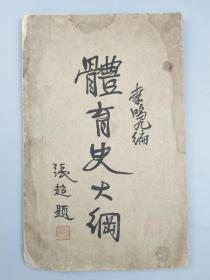 李鳴九編
體育史大綱
張超題